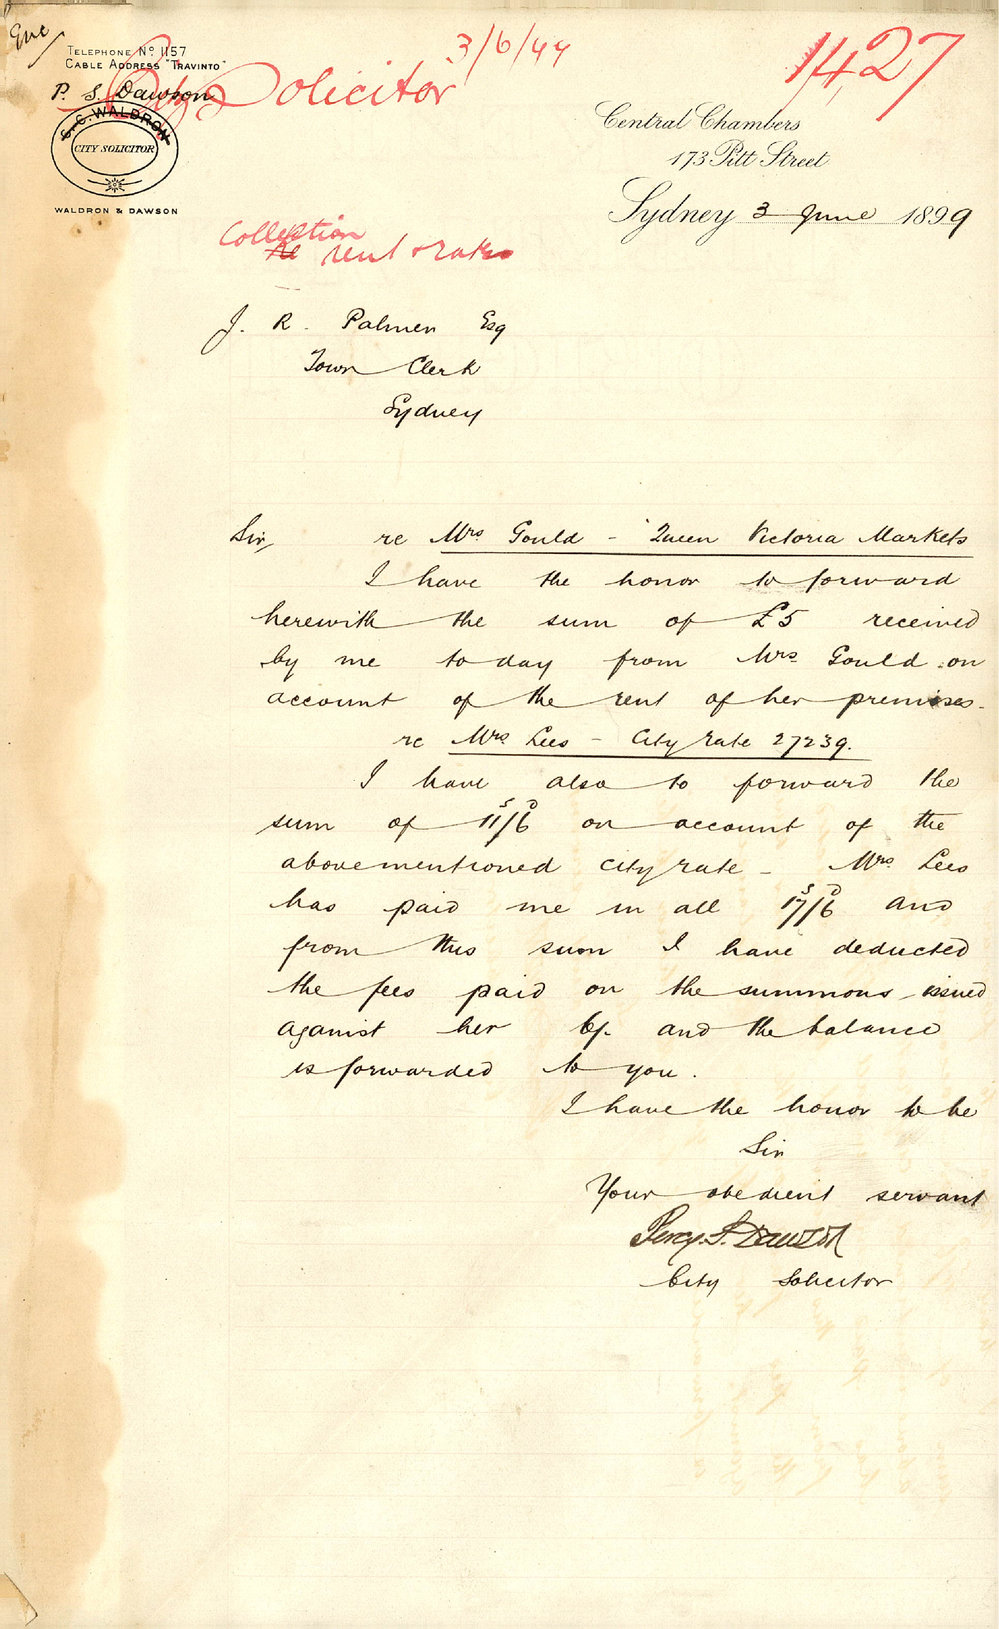 Enc
TELEPHONE No 1157
CABLE ADDRESS "TRAVINTO"
P. S. Dawson
G. C. WALDRON
CITY SOLICITOR
WALDRON & DAWSON
City Solicitor
3/6/99
1427
Central Chambers
173 Pitt Street
Sydney 3 June 1899
Collection
re rent & rates
J. R. Palmer Esq
Town Clerk
Sydney
Sir, re Mrs Gould - Queen Victoria Markets
I have the honor to forward
herewith the sum of £5 received
by me to day from Mrs Gould on
account of the rent of her premises.
re Mrs Lees - City rate 27239.
I have also to forward the
sum of 11s/6d on account of the
abovementioned city rate - Mrs Lees
has paid me in all 17s/6d and
from this sum I have deducted
the fees paid on the summons issued
against her 6/- and the balance
is forwarded to you.
I have the honor to be
Sir
Your obedient servant
Percy. S. Dawson
City Solicitor